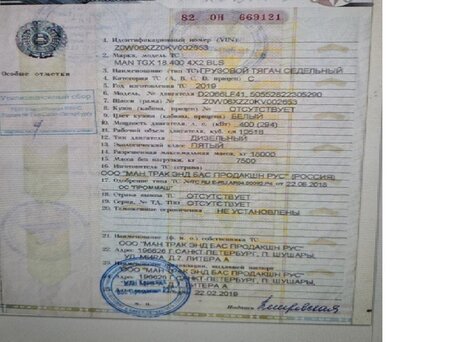 82 ОН 669121
1. Идентификационный номер (VIN)
Z0W06XZZ0KV002653
2. Марка, модель ТС
MAN TGX 18.400 4X2 BLS
3. Наименование (тип ТС) ГРУЗОВОЙ ТЯГАЧ СЕДЕЛЬНЫЙ
4. Категория ТС (А, В, С, D, прицеп) C
5. Год изготовления ТС 2019
Особые отметки
6. Модель, № двигателя D2066LF41, 50552822305290
7. Шасси (рама) № Z0W06XZZ0KV002653
Утилизационный сбор
8. Кузов (кабина, прицеп) № ОТСУТСТВУЕТ
9. Цвет кузова (кабины, прицепа) БЕЛЫЙ
10. Мощность двигателя, л. с. (кВт) 400 (294)
11. Рабочий объем двигателя, куб. см 10518
12. Тип двигателя ДИЗЕЛЬНЫЙ
13. Экологический класс ПЯТЫЙ
14. Разрешенная максимальная масса, кг 18000
15. Масса без нагрузки, кг 7500
16. Изготовитель ТС (страна)
ООО "МАН ТРАК ЭНД БАС ПРОДАКШН РУС" (РОССИЯ)
17. Одобрение типа ТС № от 22.08.2018
ОС "ПРОММАШ"
18. Страна вывоза ТС ОТСУТСТВУЕТ
19. Серия, № ТД, ТПО ОТСУТСТВУЕТ
20. Таможенные ограничения НЕ УСТАНОВЛЕНЫ
21. Наименование (ф. и. о.) собственника ТС
ООО "МАН ТРАК ЭНД БАС ПРОДАКШН РУС"
22. Адрес 196626 Г.САНКТ-ПЕТЕРБУРГ, П. ШУШАРЫ,
УЛ. МИРА Д.7 ЛИТЕРА А
23. Наименование организации, выдавшей паспорт
ООО "МАН ТРАК ЭНД БАС ПРОДАКШН РУС"
24. Адрес 196626 Г.САНКТ-ПЕТЕРБУРГ, П. ШУШАРЫ,
ЛИТЕРА А
22.02.2019
М. П.
Подпись